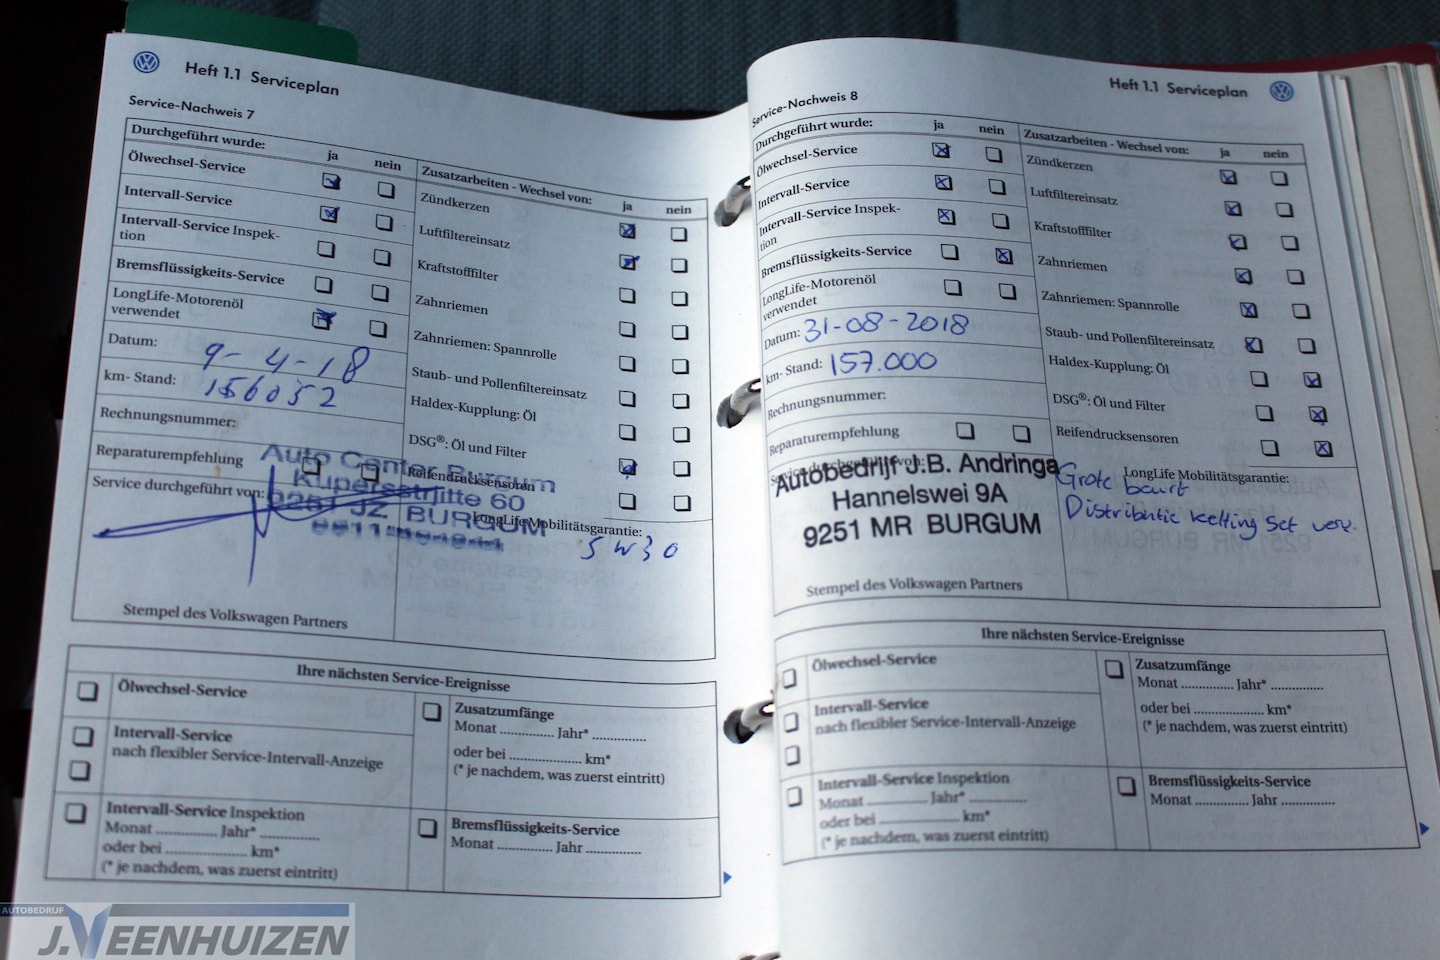 Heft 1.1 Serviceplan
Service-Nachweis 7
Durchgeführt wurde:
ja nein
Ölwechsel-Service
Intervall-Service
Intervall-Service Inspek-
tion
Bremsflüssigkeits-Service
LongLife-Motorenöl
verwendet
Datum: 9-4-18
km- Stand: 156052
Rechnungsnummer:
Reparaturempfehlung
Service durchgeführt von:
Auto Center Burgum
Kuperseftjitte 60
9251 JZ BURGUM
Stempel des Volkswagen Partners
Zusatzarbeiten - Wechsel von:
ja nein
Zündkerzen
Luftfiltereinsatz
Kraftstofffilter
Zahnriemen
Zahnriemen: Spannrolle
Staub- und Pollenfiltereinsatz
Haldex-Kupplung: Öl
DSG®: Öl und Filter
Reifendrucksensoren
LongLife Mobilitätsgarantie:
5W30
Ihre nächsten Service-Ereignisse
Ölwechsel-Service
Intervall-Service
nach flexibler Service-Intervall-Anzeige
Intervall-Service Inspektion
Monat ............... Jahr* ...............
oder bei ..................... km*
(* je nachdem, was zuerst eintritt)
Zusatzumfänge
Monat .............. Jahr* ..............
oder bei ................... km*
(* je nachdem, was zuerst eintritt)
Bremsflüssigkeits-Service
Monat .............. Jahr ..............
Heft 1.1 Serviceplan
Service-Nachweis 8
Durchgeführt wurde:
ja nein
Ölwechsel-Service
Intervall-Service
Intervall-Service Inspek-
tion
Bremsflüssigkeits-Service
LongLife-Motorenöl
verwendet
Datum: 31-08-2018
km- Stand: 157.000
Rechnungsnummer:
Reparaturempfehlung
Service durchgeführt von:
Autobedrijf J.B. Andringa
Hannelswei 9A
9251 MR BURGUM
Stempel des Volkswagen Partners
Zusatzarbeiten - Wechsel von:
ja nein
Zündkerzen
Luftfiltereinsatz
Kraftstofffilter
Zahnriemen
Zahnriemen: Spannrolle
Staub- und Pollenfiltereinsatz
Haldex-Kupplung: Öl
DSG®: Öl und Filter
Reifendrucksensoren
LongLife Mobilitätsgarantie:
Grote beurt
Distributie ketting set verv.
Ihre nächsten Service-Ereignisse
Ölwechsel-Service
Intervall-Service
nach flexibler Service-Intervall-Anzeige
Intervall-Service Inspektion
Monat ............... Jahr* ..............
oder bei .................... km*
(* je nachdem, was zuerst eintritt)
Zusatzumfänge
Monat .............. Jahr* ..............
oder bei ................... km*
(* je nachdem, was zuerst eintritt)
Bremsflüssigkeits-Service
Monat ........... Jahr ..............
AUTOBEDRIJF
J.VEENHUIZEN